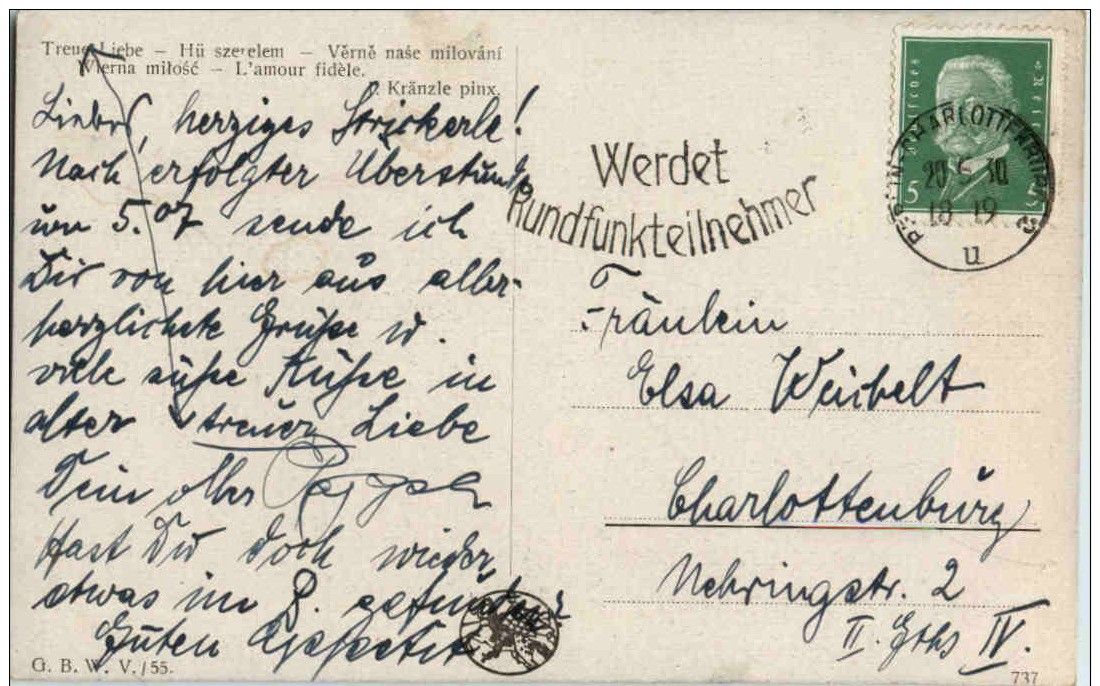 Treue Liebe — Hü szerelem — Věrně naše milování
Wierna miłość — L'amour fidèle.
Kränzle pinx.
Liebes, herziges
Nach erfolgter Überstunde
um 5.07 sende ich
Dir von hier aus aller-
herzlichste Grüße u.
viele süße Küße in
alter treuer Liebe
Dein alter
Hast Du doch wieder
etwas im gefunden?
Guten Appetit
G. B. W. V./55.
Werdet
Rundfunkteilnehmer
Deutsches Reich
5 5
BERLIN-CHARLOTTENBURG 2
20.5.30
18-19
u
Fräulein
Elsa Weibelt
Charlottenburg
Nehringstr. 2
II. Gths IV.
737